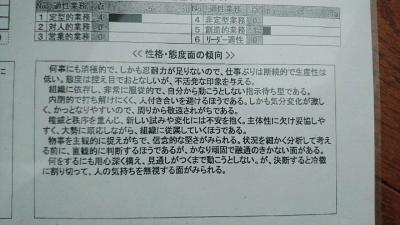 適性業務 点
適性業務
1 定型的業務 4
4 非定型的業務 0
2 対人的業務 0
5 創造的業務 1
3 営業的業務 0
6 リーダー適性 0
＜ 性格・態度面の傾向 ＞
何事にも消極的で、しかも忍耐力が足りないので、仕事ぶりは断続的で生産性は
低い。態度は控え目でおとなしいが、不活発な印象を与える。
組織に依存し、非常に服従的で、自分から動こうとしない指示待ち型である。
内閉的で打ち解けにくく、人付き合いを避けるほうである。しかも気分変化が激し
く、かっとなりやすいので、周りから敬遠されがちである。
権威と秩序を重んじ、新しい試みや変化には不安を抱く。主体性に欠け妥協しや
すく、大勢に順応しながら、組織に従属していくほうである。
物事を主観的に捉えがちで、信念的な堅さがみられる。状況を細かく分析して考え
る前に、直観的に判断するほうであるが、かなり頑固で融通のきかない面がある。
何をするにも用心深く構え、見通しがつくまで動こうとしない。が、決断すると冷徹
に割り切って、人の気持ちを無視する面がみられる。